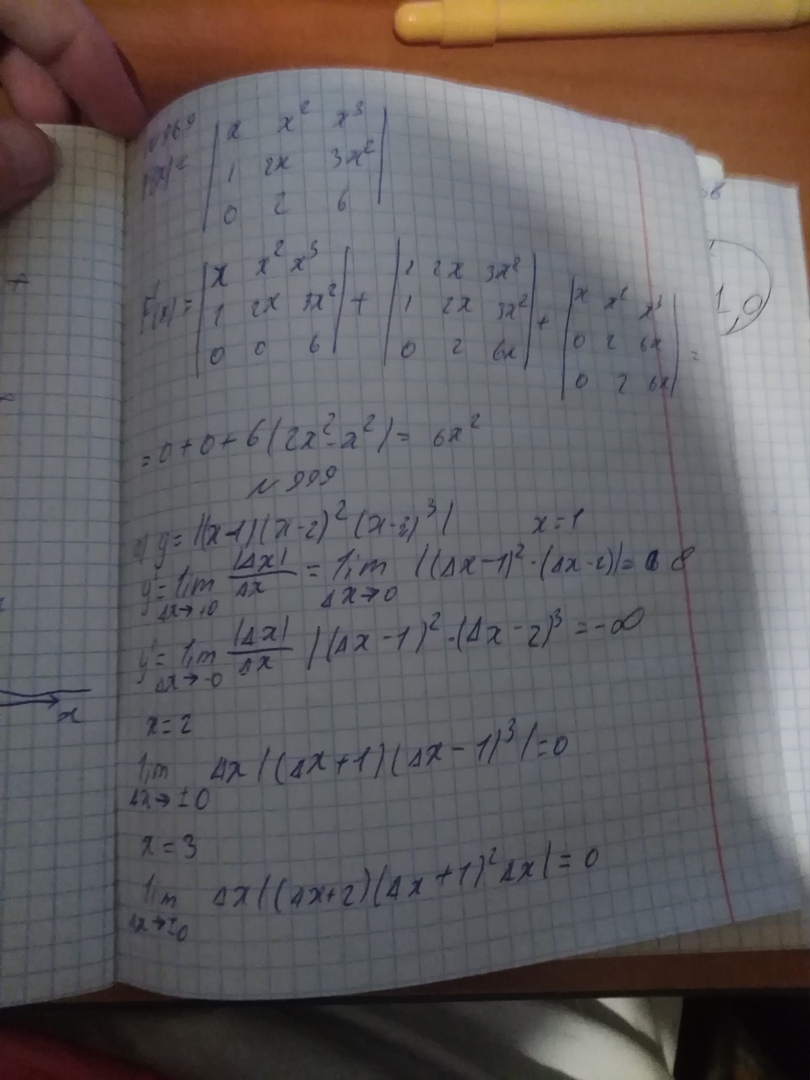 N 969
F(x)= | x x² x³ |
| 1 2x 3x² |
| 0 2 6 |
F'(x)= | x x² x³ | + | 1 2x 3x² | + | x x² x³ | =
| 1 2x 3x² | | 1 2x 3x² | | 0 2 6x |
| 0 0 6 | | 0 2 6x | | 0 2 6x |
= 0+0+6(2x²-x²)= 6x²
N 999
y= |(x-1)(x-2)²(x-3)³| x=1
y'= lim Δx→+0 |Δx|/Δx = lim Δx→0 |(Δx-1)²·(Δx-2)|= 8
y'= lim Δx→-0 |Δx|/Δx |(Δx-1)²·(Δx-2)³ =-∞
x=2
lim Δx→±0 Δx|(Δx+1)(Δx-1)³|=0
x=3
lim Δx→±0 Δx|(Δx+2)(Δx+1)²Δx|=0
x
1,0